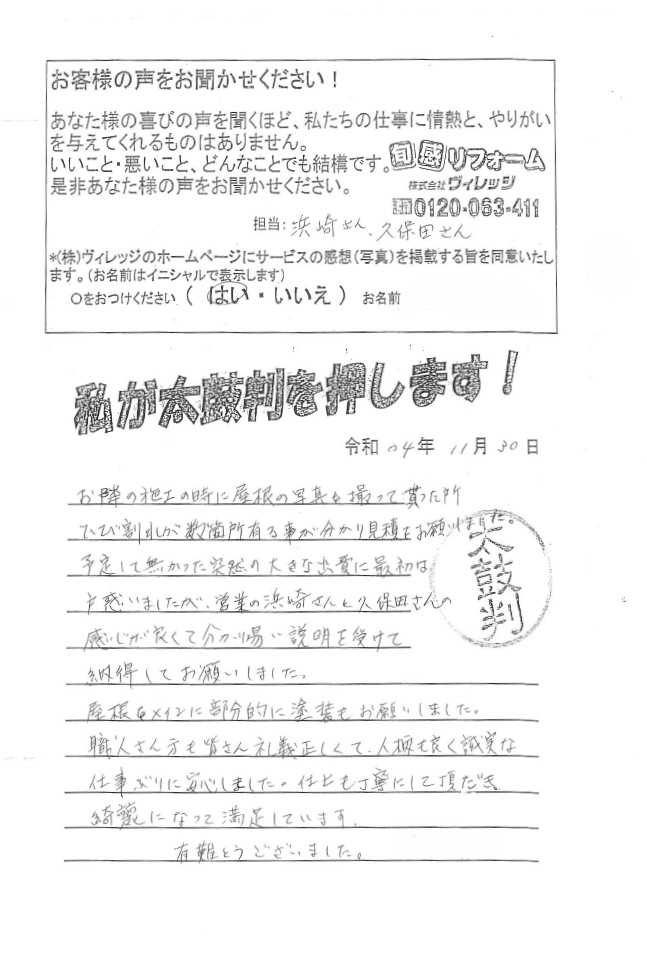 お客様の声をお聞かせください！
あなた様の喜びの声を聞くほど、私たちの仕事に情熱と、やりがい
を与えてくれるものはありません。
いいこと・悪いこと、どんなことでも結構です。
是非あなた様の声をお聞かせください。
直感リフォーム
株式会社ヴィレッジ
0120-063-411
担当: 浜崎さん、久保田さん
*(株)ヴィレッジのホームページにサービスの感想(写真)を掲載する旨を同意いたし
ます。(お名前はイニシャルで表示します)
○をおつけください ( はい ・ いいえ ) お名前
私が太鼓判を押します！
令和 04年 11月 30日
お隣の施工の時に屋根の写真を撮って貰った所
ひび割れが数箇所有る事が分かり見積をお願いしました。
予定して無かった突然の大きな出費に最初は
戸惑いましたが、営業の浜崎さんと久保田さんの
感じが良くて分かり易い説明を受けて
納得してお願いしました。
屋根をメインに部分的に塗装もお願いしました。
職人さん方も皆さん礼義正しくて、人柄も良く誠実な
仕事ぶりに安心しました。仕上も丁寧にして頂だき
綺麗になって満足しています。
有難とうございました。
太鼓判